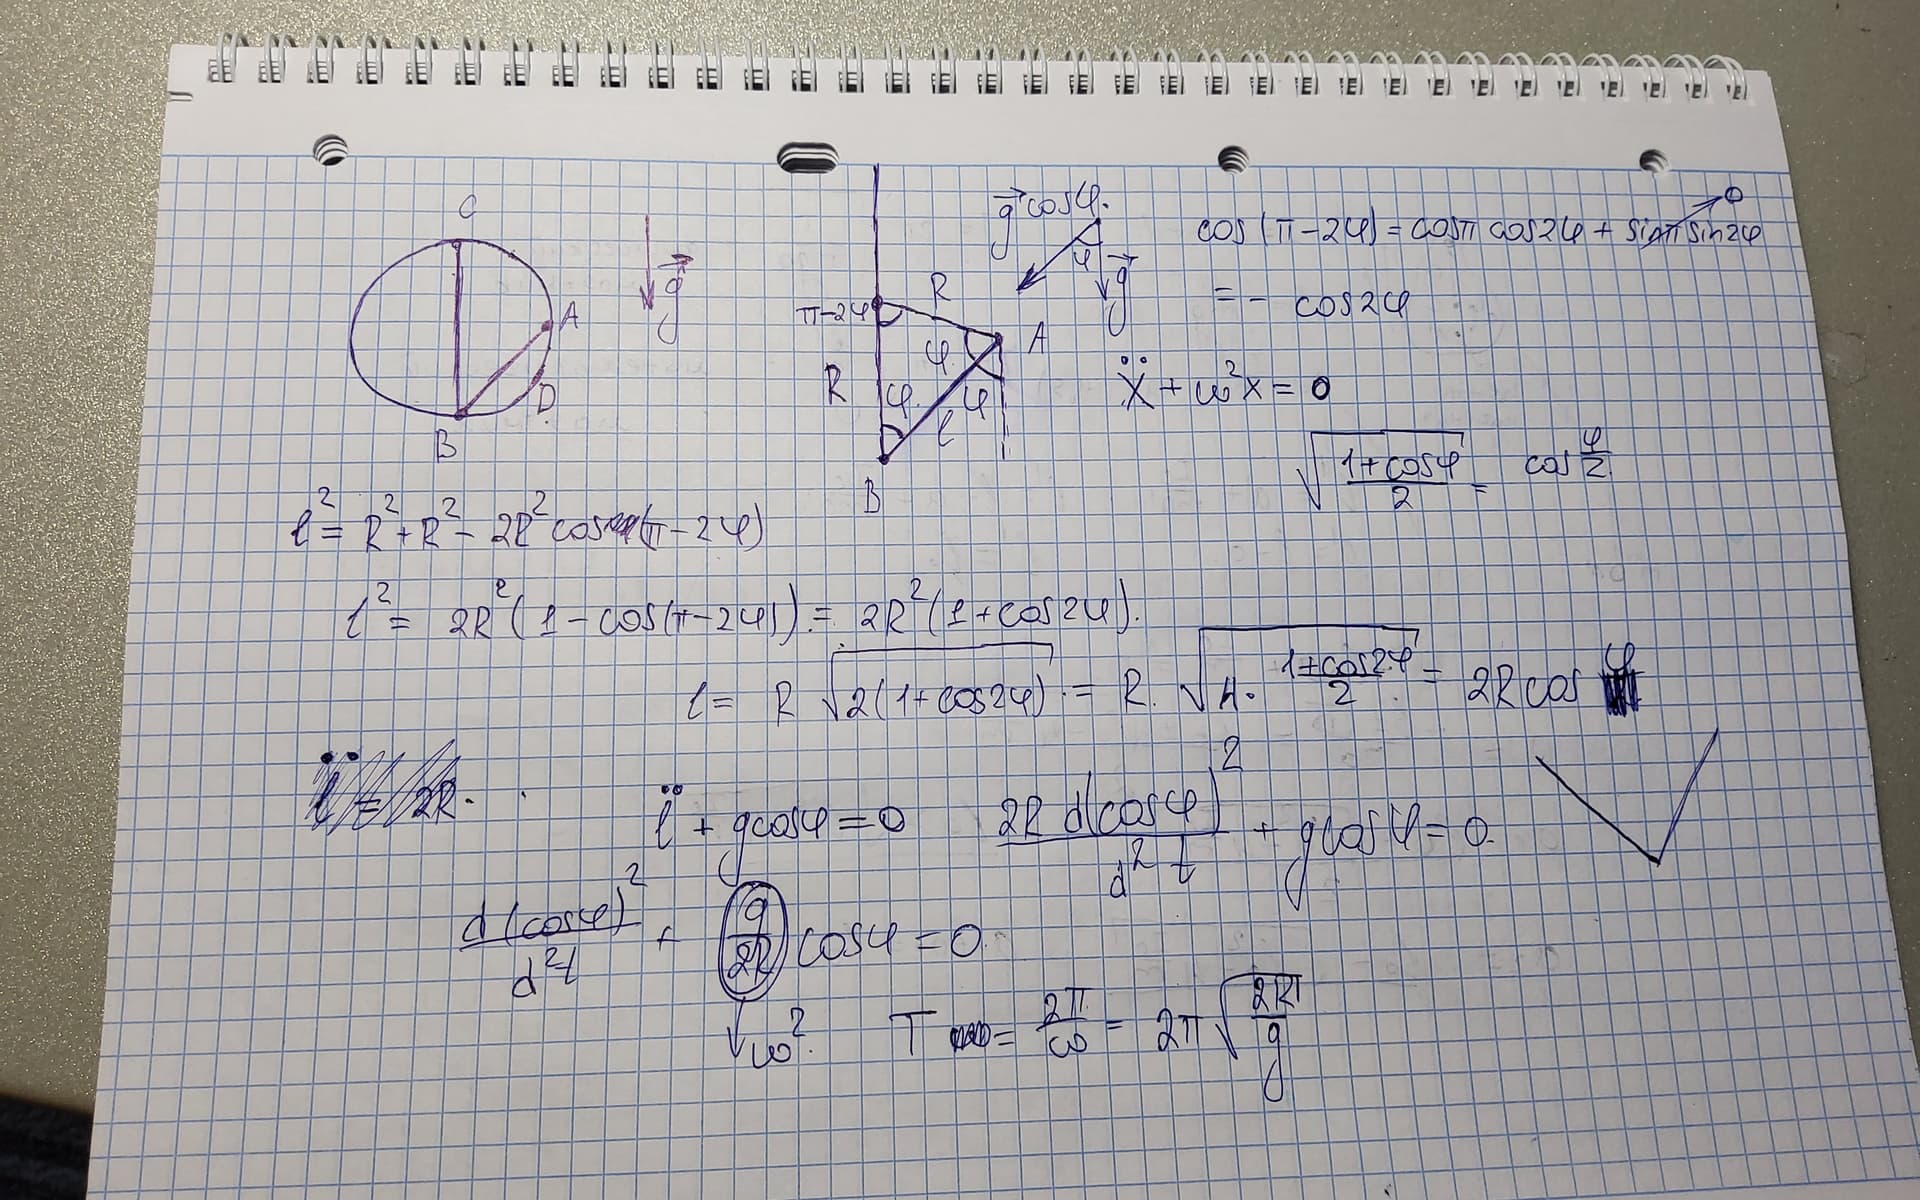 C
A
D
B
g⃗
g⃗ cosφ.
φ
g⃗
R
π-2φ
A
φ
R
φ
φ
l
B
cos(π-2φ)=cosπ cos2φ + sinπ sin2φ
0
= - cos2φ
ẍ + ω²x = 0
√((1+cosφ)/2) = cos φ/2
l² = R²+R² - 2R² cos(π-2φ)
l² = 2R²(1-cos(π-2φ)) = 2R²(1+cos2φ).
l = R √(2(1+cos2φ)) = R. √(4· (1+cos2φ)/2) = 2R cos φ
l̈ = 2R.
l̈ + g cosφ = 0 2R d(cosφ)²/d²t + g cosφ = 0.
d(cosφ)²/d²t + g/2R cosφ = 0.
ω². T = 2π/ω = 2π √(2R/g)